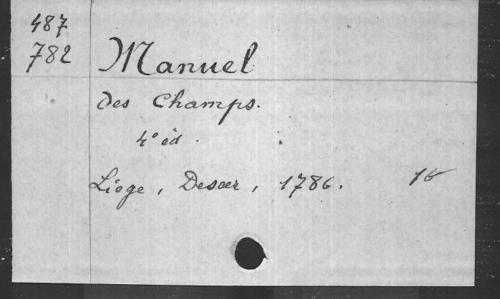 487
782
Manuel
des Champs.
4° éd.
Liège, Desoer, 1786.